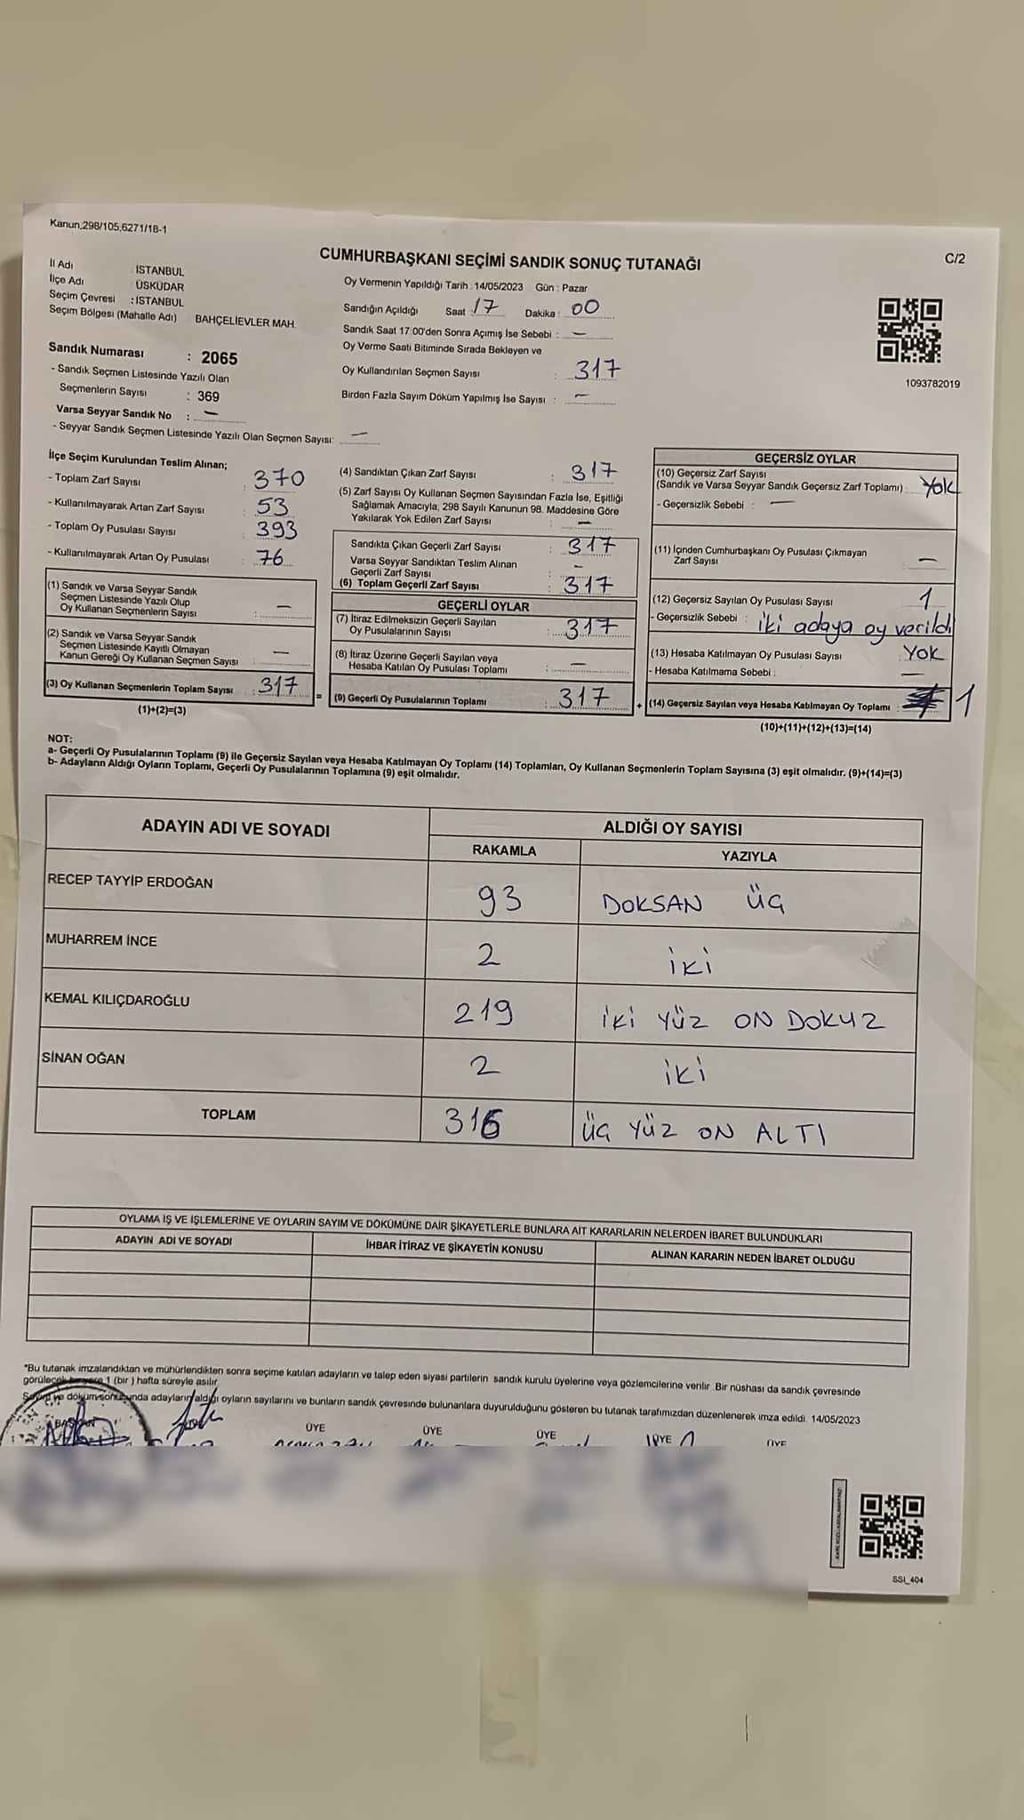 Kanun,298/105,6271/18-1
CUMHURBAŞKANI SEÇİMİ SANDIK SONUÇ TUTANAĞI
C/2
İl Adı : İSTANBUL
İlçe Adı : ÜSKÜDAR
Seçim Çevresi : İSTANBUL
Seçim Bölgesi (Mahalle Adı) BAHÇELİEVLER MAH.
Sandık Numarası : 2065
- Sandık Seçmen Listesinde Yazılı Olan
Seçmenlerin Sayısı : 369
Varsa Seyyar Sandık No : —
- Seyyar Sandık Seçmen Listesinde Yazılı Olan Seçmen Sayısı: —
Oy Vermenin Yapıldığı Tarih : 14/05/2023 Gün : Pazar
Sandığın Açıldığı Saat 17 Dakika : 00
Sandık Saat 17:00'den Sonra Açımış İse Sebebi : —
Oy Verme Saati Bitiminde Sırada Bekleyen ve
Oy Kullandırılan Seçmen Sayısı : 317
Birden Fazla Sayım Döküm Yapılmış İse Sayısı : —
1093782019
İlçe Seçim Kurulundan Teslim Alınan;
- Toplam Zarf Sayısı : 370
- Kullanılmayarak Artan Zarf Sayısı : 53
- Toplam Oy Pusulası Sayısı : 393
- Kullanılmayarak Artan Oy Pusulası : 76
(1) Sandık ve Varsa Seyyar Sandık
Seçmen Listesinde Yazılı Olup
Oy Kullanan Seçmenlerin Sayısı : —
(2) Sandık ve Varsa Seyyar Sandık
Seçmen Listesinde Kayıtlı Olmayan
Kanun Gereği Oy Kullanan Seçmen Sayısı —
(3) Oy Kullanan Seçmenlerin Toplam Sayısı : 317
(1)+(2)=(3)
(4) Sandıktan Çıkan Zarf Sayısı : 317
(5) Zarf Sayısı Oy Kullanan Seçmen Sayısından Fazla İse, Eşitliği
Sağlamak Amacıyla, 298 Sayılı Kanunun 98. Maddesine Göre
Yakılarak Yok Edilen Zarf Sayısı : —
Sandıkta Çıkan Geçerli Zarf Sayısı : 317
Varsa Seyyar Sandıktan Teslim Alınan
Geçerli Zarf Sayısı : -
(6) Toplam Geçerli Zarf Sayısı : 317
GEÇERLİ OYLAR
(7) İtiraz Edilmeksizin Geçerli Sayılan
Oy Pusulalarının Sayısı : 317
(8) İtiraz Üzerine Geçerli Sayılan veya
Hesaba Katılan Oy Pusulası Toplamı : —
= (9) Geçerli Oy Pusulalarının Toplamı : 317
GEÇERSİZ OYLAR
(10) Geçersiz Zarf Sayısı
(Sandık ve Varsa Seyyar Sandık Geçersiz Zarf Toplamı) : Yok
- Geçersizlik Sebebi : —
(11) İçinden Cumhurbaşkanı Oy Pusulası Çıkmayan
Zarf Sayısı : —
(12) Geçersiz Sayılan Oy Pusulası Sayısı : 1
- Geçersizlik Sebebi : iki adaya oy verildi
(13) Hesaba Katılmayan Oy Pusulası Sayısı : Yok
- Hesaba Katılmama Sebebi : —
+ (14) Geçersiz Sayılan veya Hesaba Katılmayan Oy Toplamı : 1
(10)+(11)+(12)+(13)=(14)
NOT:
a- Geçerli Oy Pusulalarının Toplamı (9) ile Geçersiz Sayılan veya Hesaba Katılmayan Oy Toplamı (14) Toplamları, Oy Kullanan Seçmenlerin Toplam Sayısına (3) eşit olmalıdır. (9)+(14)=(3)
b- Adayların Aldığı Oyların Toplamı, Geçerli Oy Pusulalarının Toplamına (9) eşit olmalıdır.
ADAYIN ADI VE SOYADI ALDIĞI OY SAYISI
RAKAMLA YAZIYLA
RECEP TAYYİP ERDOĞAN 93 DOKSAN ÜÇ
MUHARREM İNCE 2 İKİ
KEMAL KILIÇDAROĞLU 219 İKİ YÜZ ON DOKUZ
SİNAN OĞAN 2 İKİ
TOPLAM 316 ÜÇ YÜZ ON ALTI
OYLAMA İŞ VE İŞLEMLERİNE VE OYLARIN SAYIM VE DÖKÜMÜNE DAİR ŞİKAYETLERLE BUNLARA AİT KARARLARIN NELERDEN İBARET BULUNDUKLARI
ADAYIN ADI VE SOYADI İHBAR İTİRAZ VE ŞİKAYETİN KONUSU ALINAN KARARIN NEDEN İBARET OLDUĞU
*Bu tutanak imzalandıktan ve mühürlendikten sonra seçime katılan adayların ve talep eden siyasi partilerin sandık kurulu üyelerine veya gözlemcilerine verilir. Bir nüshası da sandık çevresinde
görülecek bir yere 1 (bir ) hafta süreyle asılır.
Sayım ve döküm sonunda adayların aldığı oyların sayılarını ve bunların sandık çevresinde bulunanlara duyurulduğunu gösteren bu tutanak tarafımızdan düzenlenerek imza edildi. 14/05/2023
BAŞKAN ÜYE ÜYE ÜYE ÜYE ÜYE
SSI_404